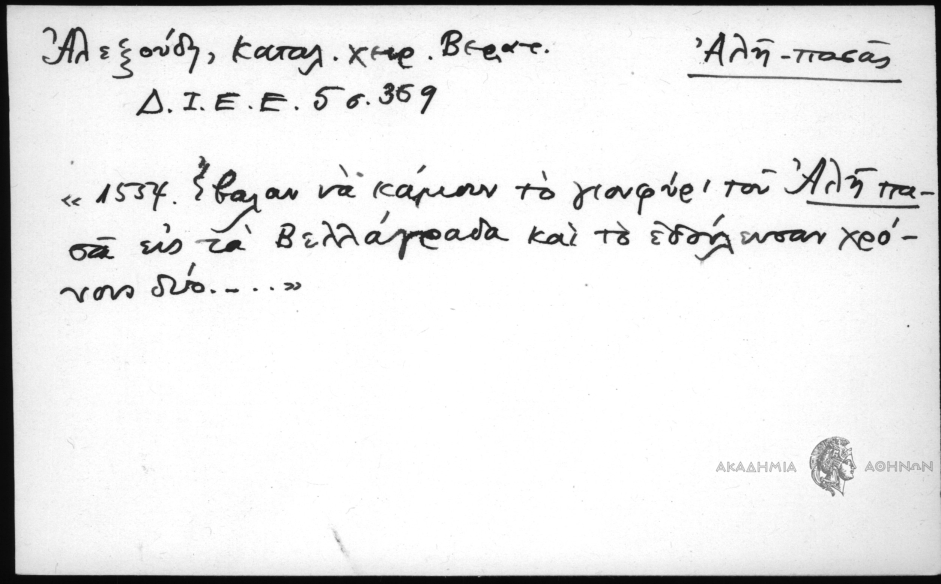 Ἀλεξούδη, Καταλ. χειρ. Βερατ.
Ἀλῆ-πασᾶς
Δ.Ι.Ε.Ε. 5 σ. 369
« 1554. Ἔβαλαν νὰ κάμουν τὸ γιουφύρι τοῦ Ἀλῆ πα-
σᾶ εἰς τὰ Βελλάγραδα καὶ τὸ ἐδούλευσαν χρό-
νους δύο..... »
ΑΚΑΔΗΜΙΑ ΑΘΗΝΩΝ